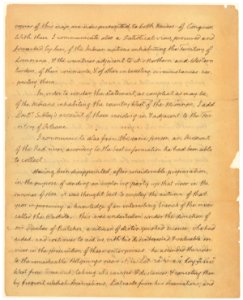 copies of this map are now presented to both Houses of Congress.
With these I communicate also a Statistical view, procured and
forwarded by him, of the Indian nations inhabiting the territory of
Louisiana & the countries adjacent to it's Northern and Western
borders, of their commerce, & of other interesting circumstances re-
-specting them.
In order to render the statement as complete as may be,
of the Indians inhabiting the country West of the Missisipi, I add
Doctr. Sibley's account of those residing in & adjacent to the Terri-
-tory of Orleans.
I communicate also from the same person an Account
of the Red river, according to the best information he had been able
to collect.
Having been disappointed after considerable preparation,
in the purpose of sending an exploring party up that river in the
summer of 1804, it was thought best to employ the autumn of that
year in procuring a knowledge of an interesting branch of the river
called the Washita. This was undertaken under the direction of
Mr Dunbar of Natchez, a citizen of distinguished science, who had
aided, and continues to aid us, with his disinterested & valuable ser-
vices in the prosecution of these enterprises. He ascended the river
to the remarkable Hot springs near it, in Lat.
West from Greenwich, taking it's courses & distances, & correcting them
by frequent celestial observations. Extracts from his observations, and